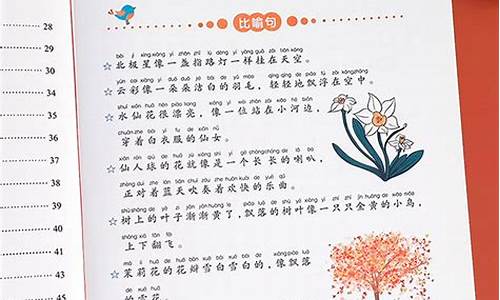 28
34
35
36
38
39
41
45
50
比喻句
běi jí xīng xiàng yì zhǎn zhǐ lù dēng yí yàng guà zài tiān kōng
☆北极星像一盏指路灯一样挂在天空。
yún cai xiàng yì duǒ duǒ jié bái de yǔ máo qīng qīng de piāo fú zài kōng zhōng
☆云彩像一朵朵洁白的羽毛，轻轻地飘浮在空中。
shuǐ xiān huā hěn piào liang xiàng yí wèi zhàn zài xiǎo hé biān
☆水仙花很漂亮，像一位站在小河边，
chuān zhe bái yī fu de xiān nǚ
穿着白衣服的仙女。
xiān rén qiú de huā jiù xiàng shì yí gè cháng cháng de lǎ ba
☆仙人球的花就像是一个长长的喇叭，
zhèng duì zhe lán tiān chuī zòu zhe huān kuài de yuè qǔ
正对着蓝天吹奏着欢快的乐曲。
shù shàng de yè zi jiàn jiàn huáng le piāo luò de shù yè xiàng yì zhī zhī jīn huáng de xiǎo niǎo
☆树上的叶子渐渐黄了，飘落的树叶像一只只金黄的小鸟，
shàng xià fān fēi
上下翻飞。
mò lì huā de huā bàn xuě bái xuě bái de xiàng piāo luò
☆茉莉花的花瓣雪白雪白的，像飘落
的雪花。